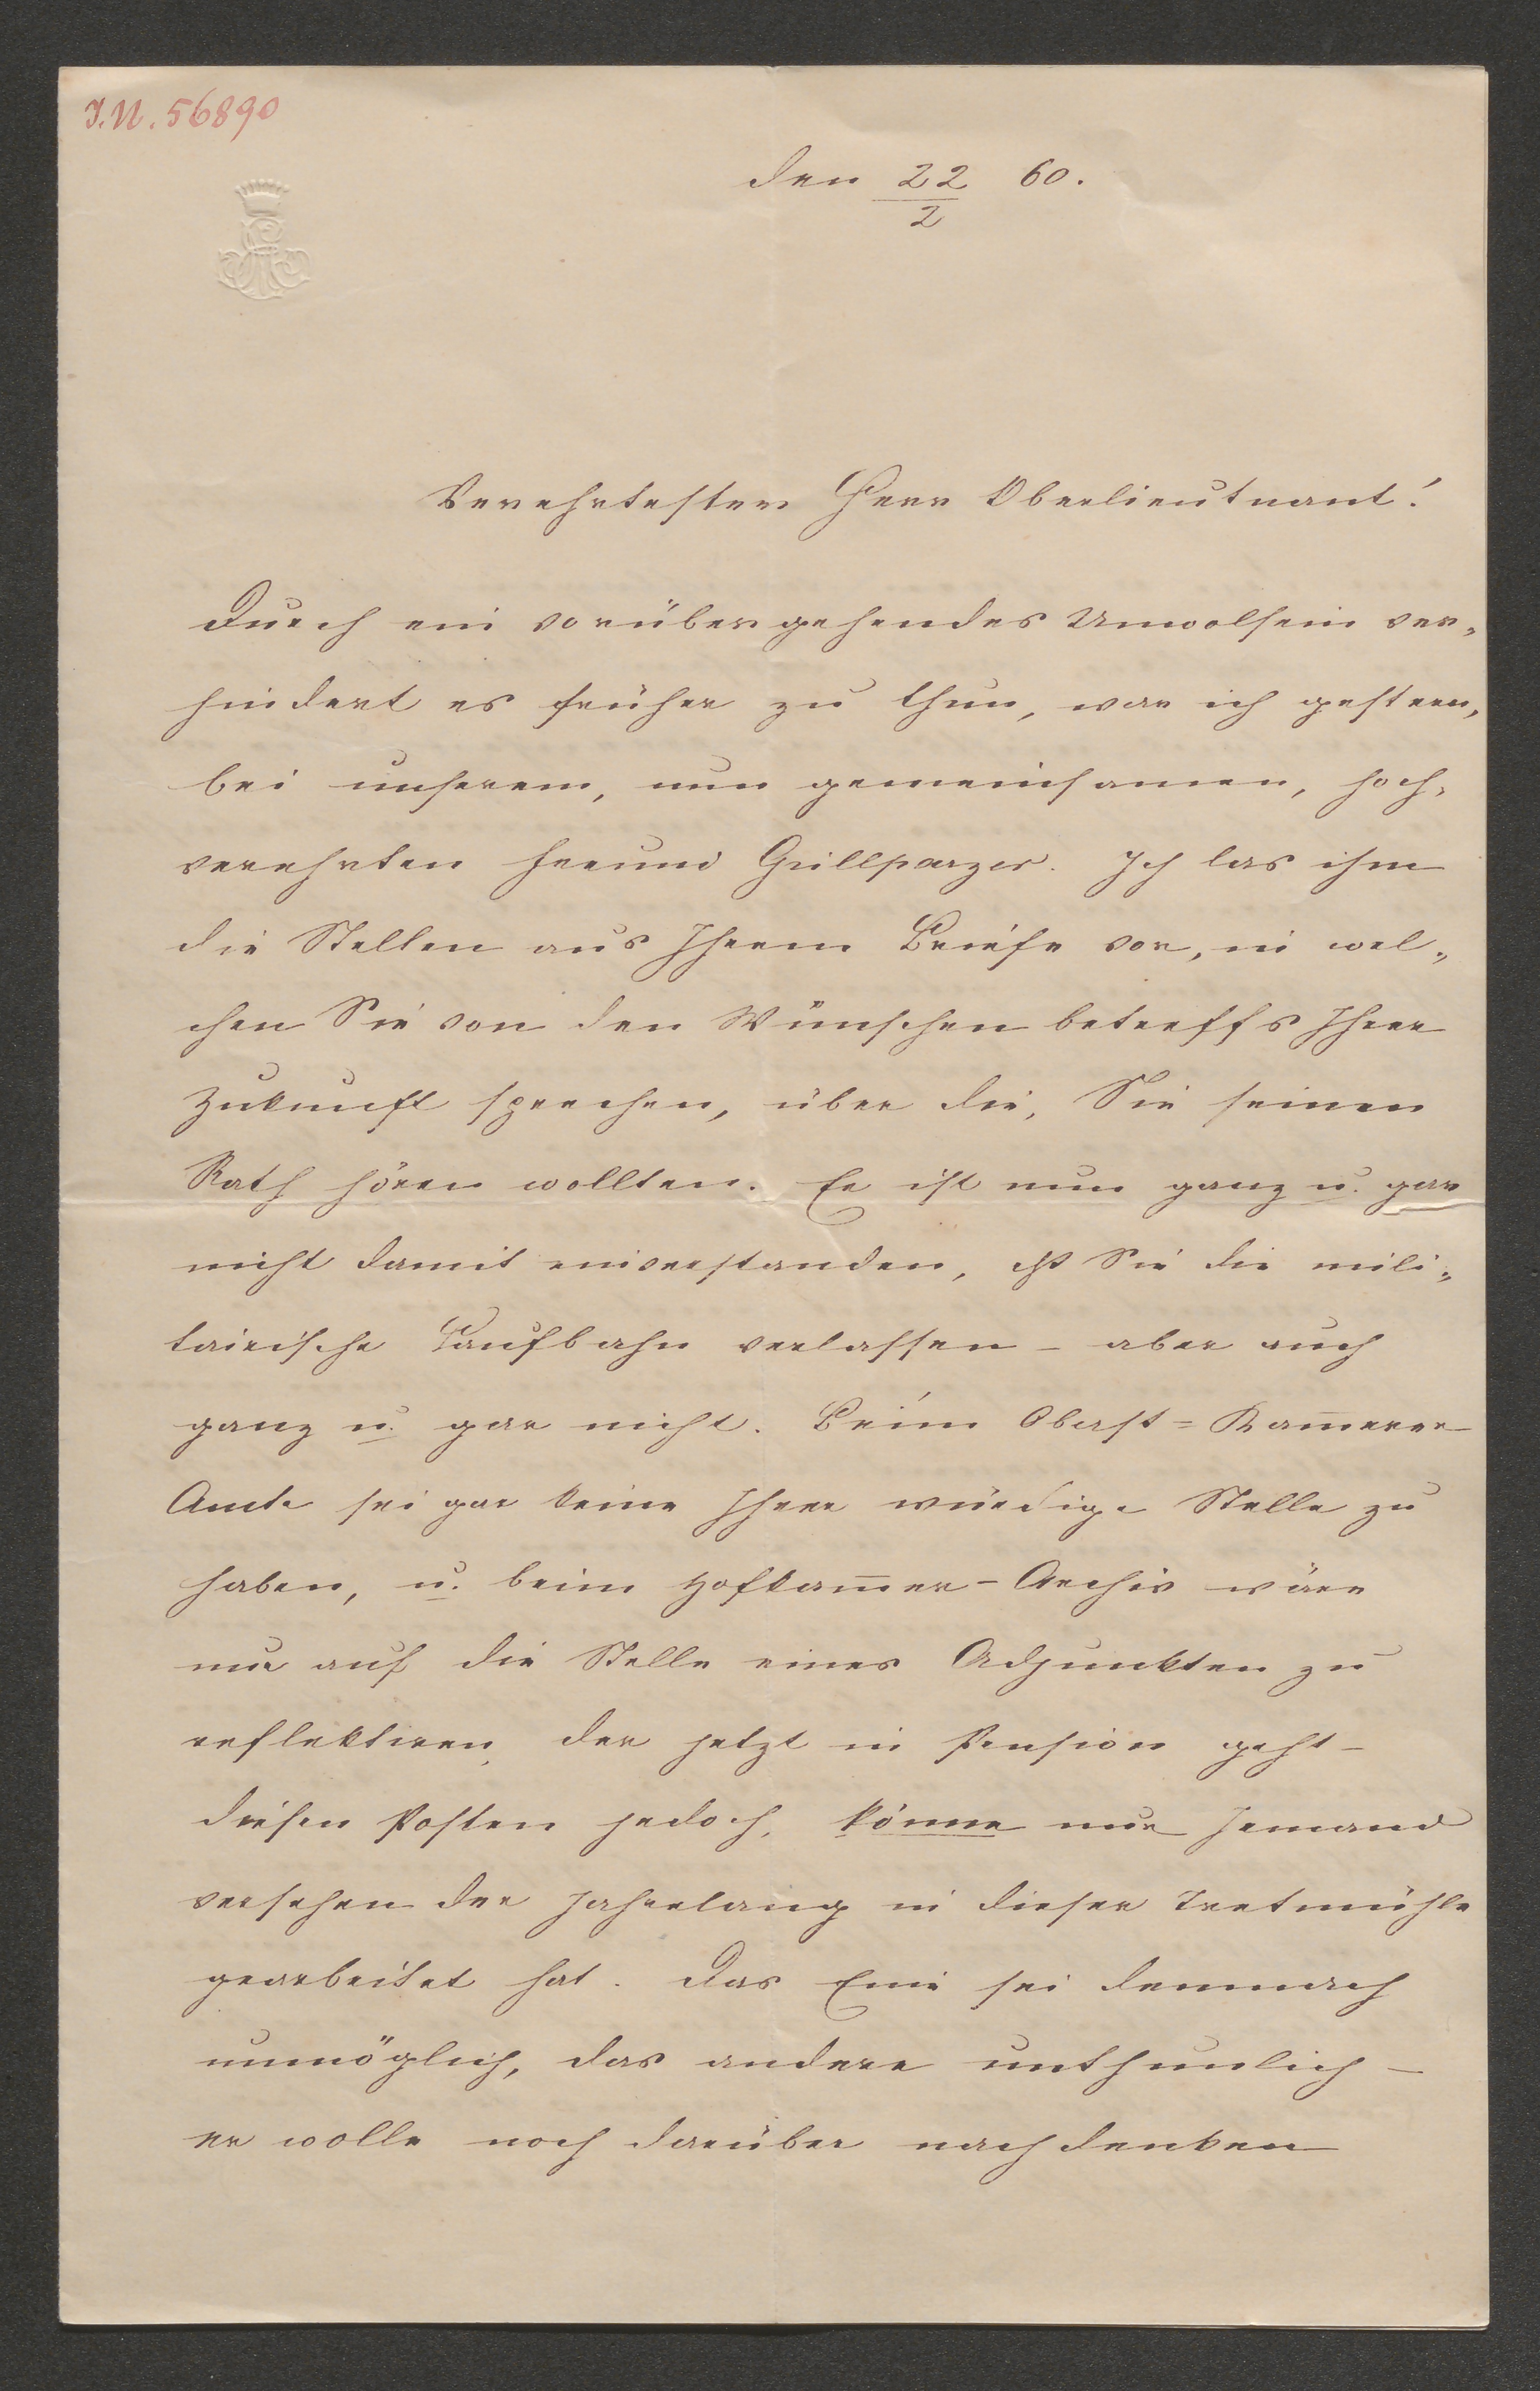 I.N. 56890
den 22/2 60.
Verehrtester Herr Oberlieutnant!
Durch ein vorübergehendes Unwolsein ver„
hindert es früher zu thun, war ich gestern,
bei unserem, nun gemeinsamen, hoch„
verehrten Freund Grillparzer. Ich las ihm
die Stellen aus Ihrem Briefe vor, in wel„
chen Sie von den Wünschen betreffs Ihrer
Zukunft sprechen, über die, Sie seinen
Rath hören wollten. Er ist nun ganz u. gar
nicht damit einverstanden, dß Sie die mili„
tairische Laufbahn verlassen – aber auch
ganz u. gar nicht. Beim Oberst=Kam̅erer
Amte sei gar keine Ihrer würdige Stelle zu
haben, u. beim Hofkam̅er-Archiv wäre
nur auf die Stelle eines Adjunkten zu
reflektiren, der jetzt in Pension geht –
diesen Posten jedoch, könne nur Jemand
versehen der Jahrelang in dieser Tretmühle
gearbeitet hat. Das Eine sei demnach
unmöglich, das andere unthunlich –
er wolle noch darüber nachdenken